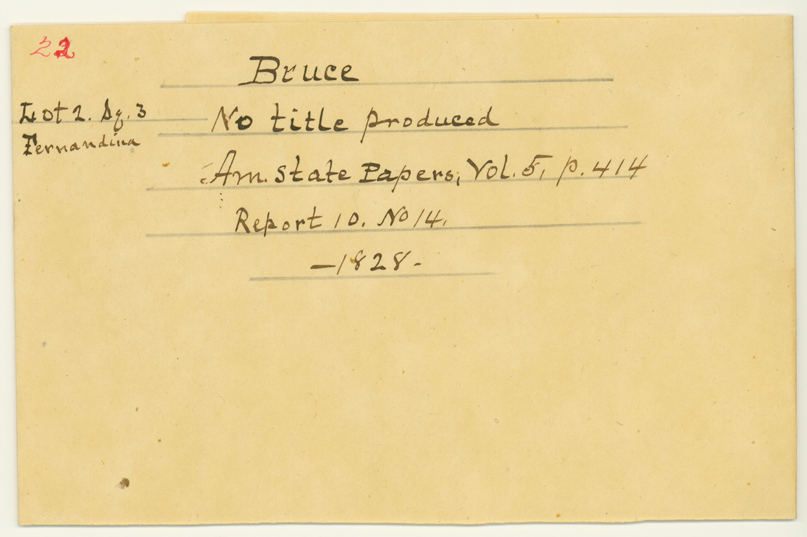 22
Bruce
Lot 2. Sq. 3
Fernandina
No title produced
Am. State Papers, Vol. 5, p. 414
Report 10. No 14.
—1828-